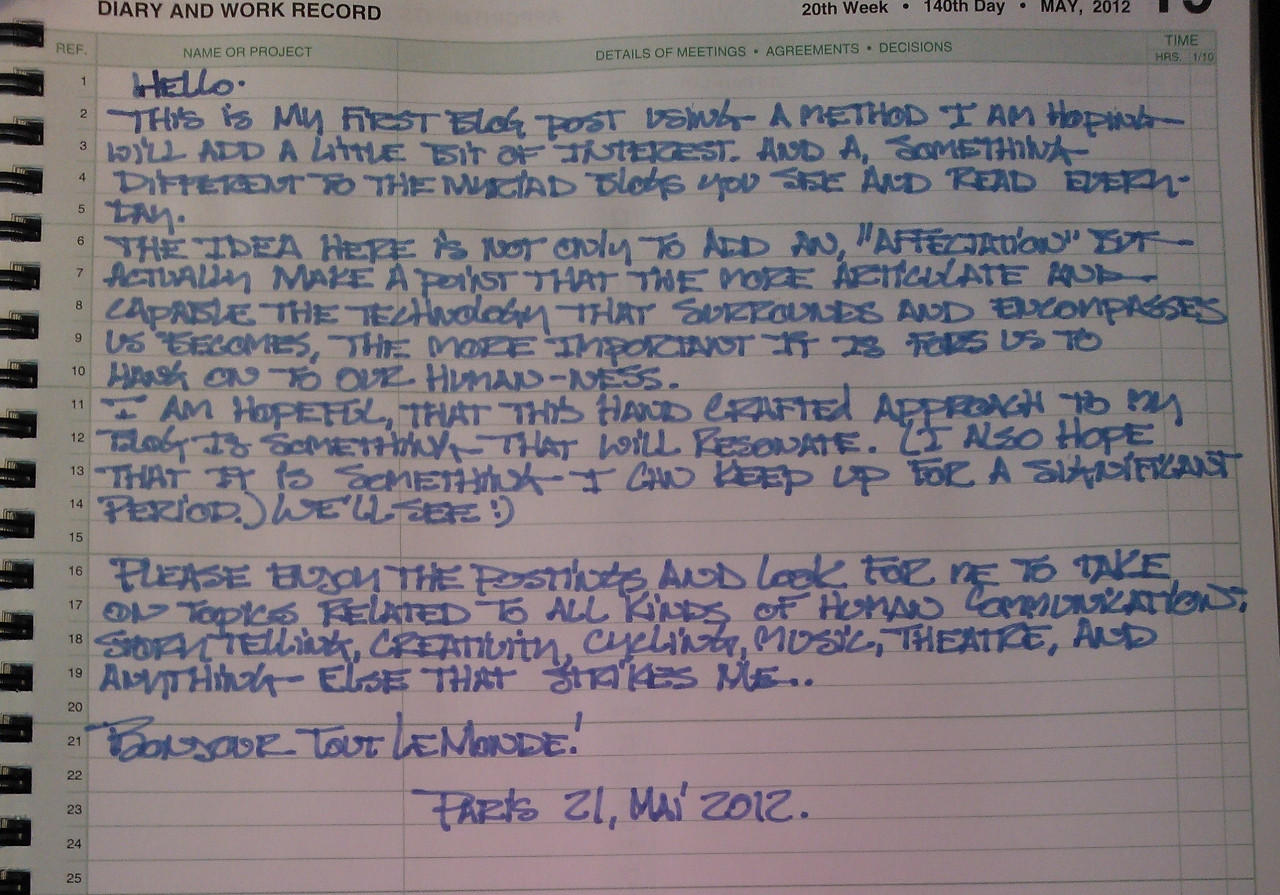 DIARY AND WORK RECORD 20th Week • 140th Day • MAY, 2012
REF. NAME OR PROJECT DETAILS OF MEETINGS • AGREEMENTS • DECISIONS TIME
HRS. 1/10
1 HELLO.
2 THIS IS MY FIRST BLOG POST USING A METHOD I AM HOPING
3 WILL ADD A LITTLE BIT OF INTEREST. AND A, SOMETHING
4 DIFFERENT TO THE MYRIAD BLOGS YOU SEE AND READ EVERY-
5 DAY.
6 THE IDEA HERE IS NOT ONLY TO ADD AN, "AFFECTATION" BUT
7 ACTUALLY MAKE A POINT THAT THE MORE ARTICULATE AND
8 CAPABLE THE TECHNOLOGY THAT SURROUNDS AND ENCOMPASSES
9 US BECOMES, THE MORE IMPORTANT IT IS FORS US TO
10 HANG ON TO OUR HUMAN-NESS.
11 I AM HOPEFUL, THAT THIS HAND CRAFTED APPROACH TO MY
12 BLOG IS SOMETHING THAT WILL RESONATE. (I ALSO HOPE
13 THAT IT IS SOMETHING I CAN KEEP UP FOR A SIGNIFICANT
14 PERIOD.) WE'LL SEE :)
15
16 PLEASE ENJOY THE POSTINGS AND LOOK FOR ME TO TAKE
17 ON TOPICS RELATED TO ALL KINDS OF HUMAN COMMUNICATIONS;
18 STORY TELLING, CREATIVITY, CYCLING, MUSIC, THEATRE, AND
19 ANYTHING ELSE THAT STRIKES ME...
20
21 BONJOUR TOUT LE MONDE!
22
23 PARIS 21, MAI 2012.
24
25